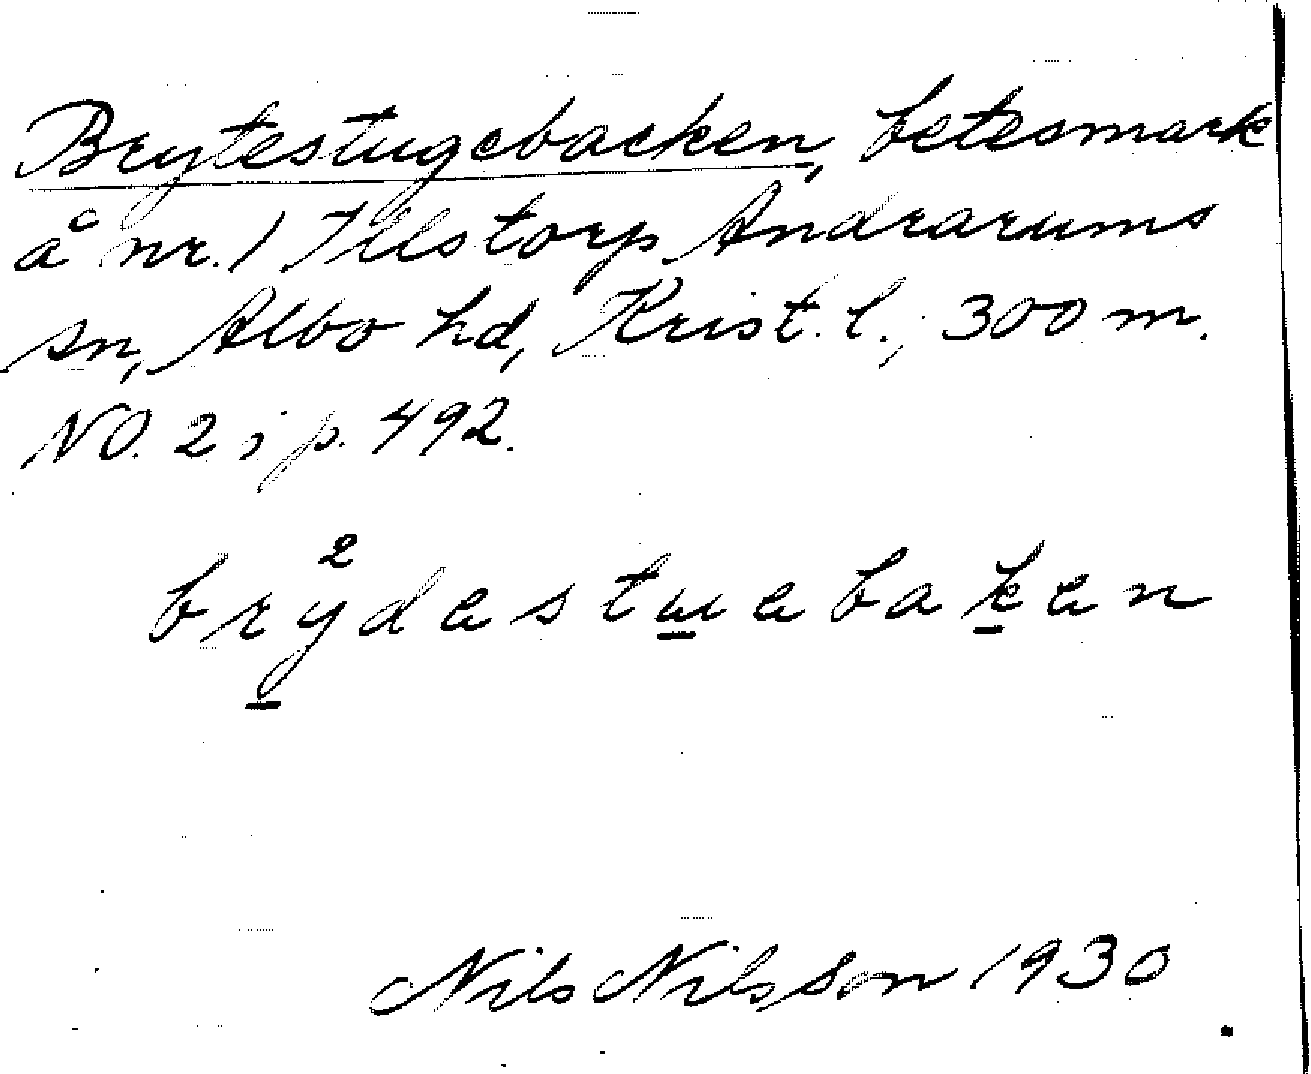 Brytestugebacken, betesmark
å nr. 1 Illstorp Andrarums
sn, Albo hd, Krist. l.; 300 m.
NO. 2 i p. 492.
brẙ²destuebaken
Nils Nilsson 1930